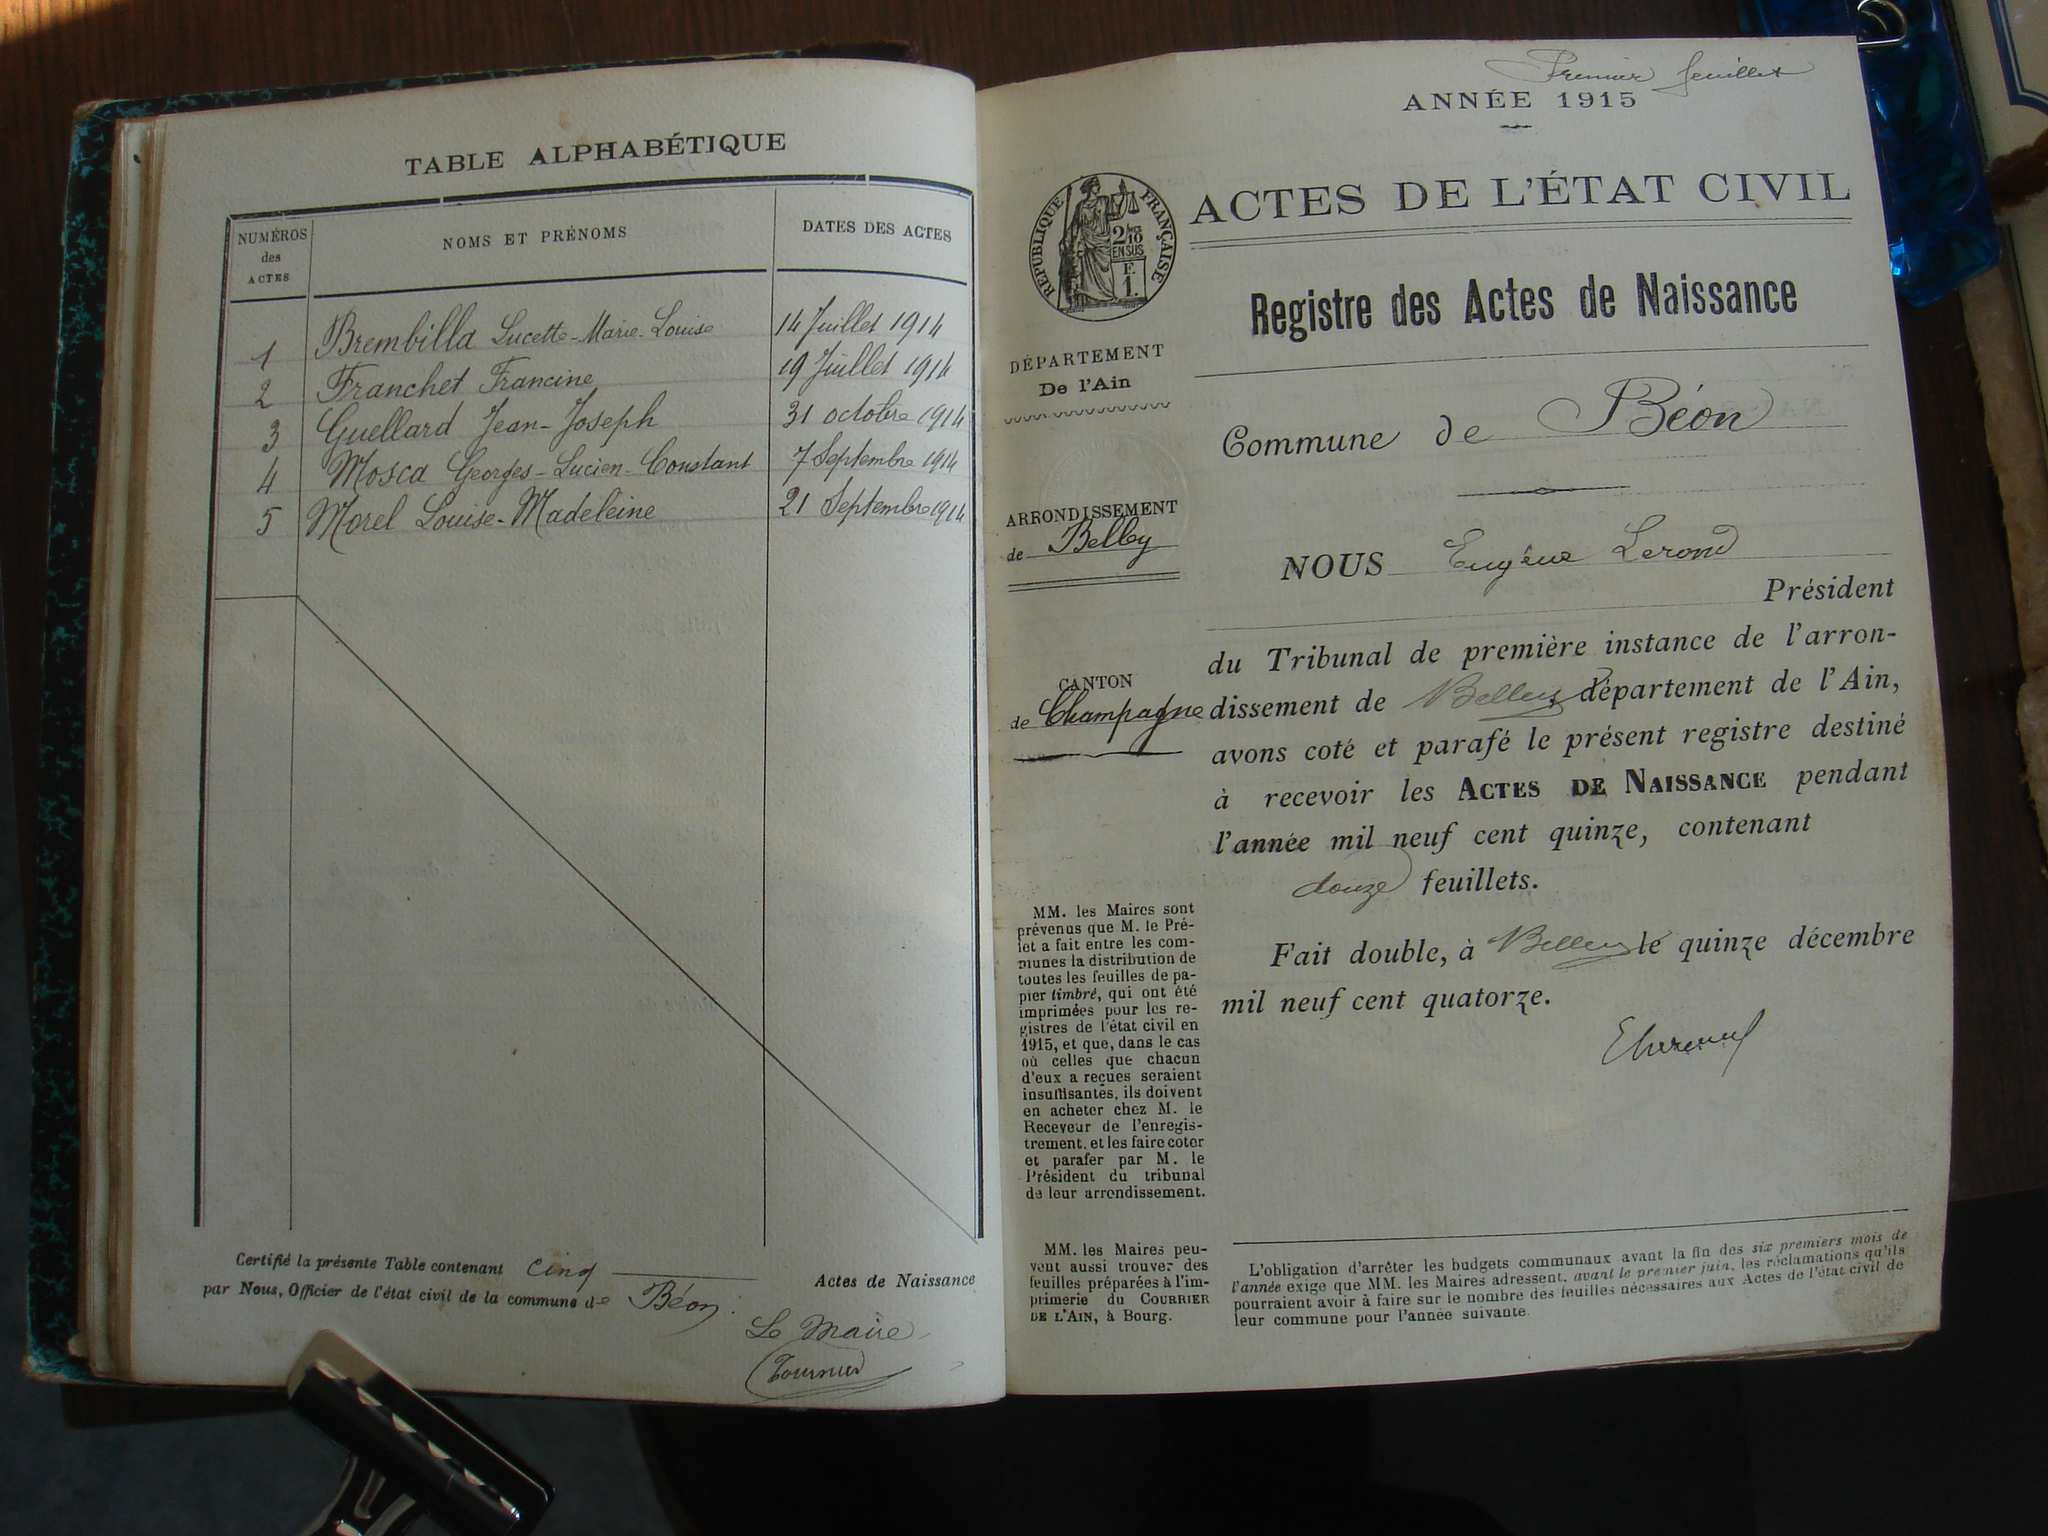 TABLE ALPHABÉTIQUE
NUMÉROS des ACTES
NOMS ET PRÉNOMS
DATES DES ACTES
1 Brembilla Lucette-Marie-Louise 14 Juillet 1914
2 Franchet Francine 19 Juillet 1914
3 Guellard Jean-Joseph 31 octobre 1914
4 Mosca Georges-Lucien-Constant 7 Septembre 1914
5 Morel Louise-Madeleine 21 Septembre 1914
Certifié la présente Table contenant cinq Actes de Naissance
par Nous, Officier de l'état civil de la commune de Béon.
Le Maire
Premier feuillet
ANNÉE 1915
RÉPUBLIQUE FRANÇAISE
2/10
EN SUS
F.
1.
ACTES DE L'ÉTAT CIVIL
Registre des Actes de Naissance
DÉPARTEMENT
De l'Ain
Commune de Béon
ARRONDISSEMENT
de Belley
NOUS Eugène Lerond
Président
CANTON
de Champagne
du Tribunal de première instance de l'arron-
dissement de Belley département de l'Ain,
avons coté et parafé le présent registre destiné
à recevoir les ACTES DE NAISSANCE pendant
l'année mil neuf cent quinze, contenant
douze feuillets.
Fait double, à Belley le quinze décembre
mil neuf cent quatorze.
MM. les Maires sont
prévenus que M. le Pré-
fet a fait entre les com-
munes la distribution de
toutes les feuilles de pa-
pier timbré, qui ont été
imprimées pour les re-
gistres de l'état civil en
1915, et que, dans le cas
où celles que chacun
d'eux a reçues seraient
insuffisantes, ils doivent
en acheter chez M. le
Receveur de l'enregis-
trement, et les faire coter
et parafer par M. le
Président du tribunal
de leur arrondissement.
MM. les Maires peu-
vent aussi trouver des
feuilles préparées à l'im-
primerie du COURRIER
DE L'AIN, à Bourg.
L'obligation d'arrêter les budgets communaux avant la fin des six premiers mois de
l'année exige que MM. les Maires adressent, avant le premier juin, les réclamations qu'ils
pourraient avoir à faire sur le nombre des feuilles nécessaires aux Actes de l'état civil de
leur commune pour l'année suivante.